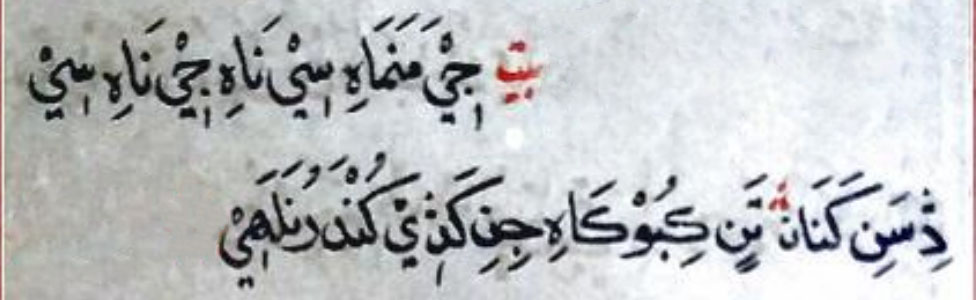 بيت جِيْ مَنَمَاهِ سِيْ نَاهِ جِيْ نَاهِ سِيْ
ڎِسَنِ كَنَانہ تَنِ كِبُوْ كَاهِ جِنِ كَنِڎِيْ كُنْدَرُ نَلَهِيْ